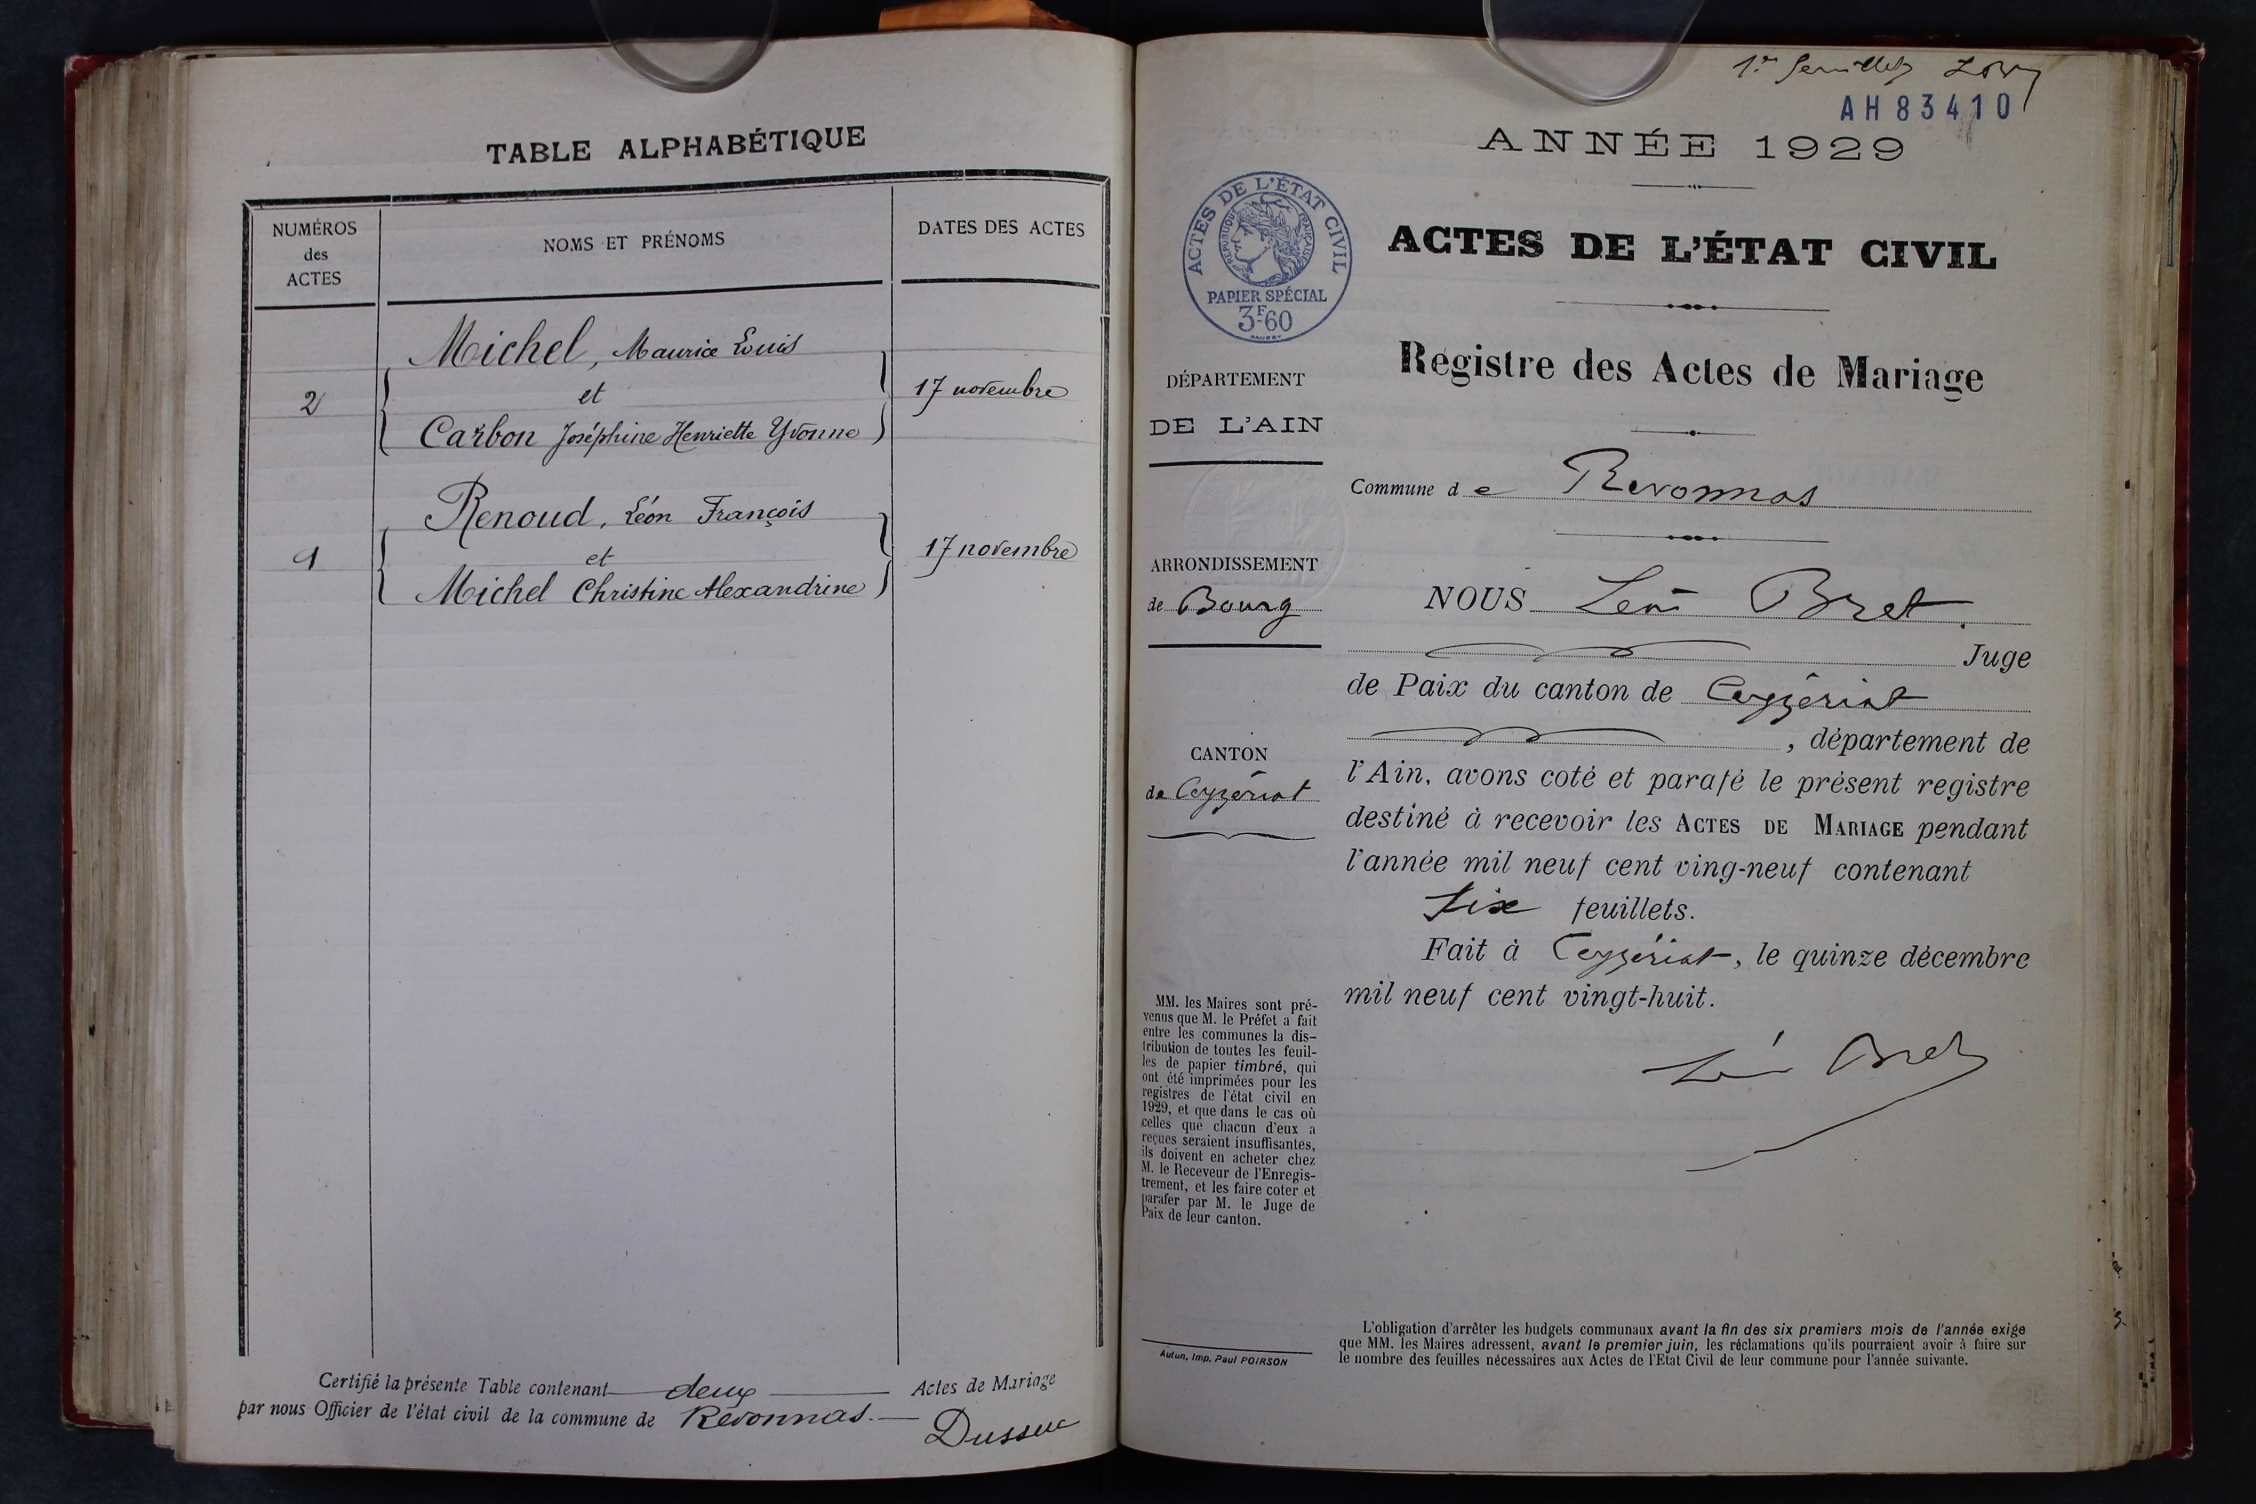 TABLE ALPHABÉTIQUE
NUMÉROS
des
ACTES
NOMS ET PRÉNOMS
DATES DES ACTES
Michel, Maurice Louis
2
et
17 novembre
Carbon Joséphine Henriette Yvonne
Renoud, Léon François
1
et
17 novembre
Michel Christine Alexandrine
Certifié la présente Table contenant deux Actes de Mariage
par nous Officier de l'état civil de la commune de Revonnas.
1er feuillet
AH 83410
ANNÉE 1929
ACTES DE L'ÉTAT CIVIL
RÉPUBLIQUE FRANÇAISE
PAPIER SPÉCIAL
3F60
ACTES DE L'ÉTAT CIVIL
Registre des Actes de Mariage
DÉPARTEMENT
DE L'AIN
Commune de Revonnas
ARRONDISSEMENT
de Bourg
NOUS Léon Bret.
Juge
de Paix du canton de Ceyzériat
, département de
CANTON
de Ceyzériat
l'Ain, avons coté et parafé le présent registre
destiné à recevoir les ACTES DE MARIAGE pendant
l'année mil neuf cent ving-neuf contenant
Six feuillets.
Fait à Ceyzériat, le quinze décembre
mil neuf cent vingt-huit.
Léon Bret
MM. les Maires sont pré-
venus que M. le Préfet a fait
entre les communes la dis-
tribution de toutes les feuil-
les de papier timbré, qui
ont été imprimées pour les
registres de l'état civil en
1929, et que dans le cas où
celles que chacun d'eux a
reçues seraient insuffisantes,
ils doivent en acheter chez
M. le Receveur de l'Enregis-
trement, et les faire coter et
parafer par M. le Juge de
Paix de leur canton.
Autun, Imp. Paul POIRSON
L'obligation d'arrêter les budgets communaux avant la fin des six premiers mois de l'année exige
que MM. les Maires adressent, avant le premier juin, les réclamations qu'ils pourraient avoir à faire sur
le nombre des feuilles nécessaires aux Actes de l'Etat Civil de leur commune pour l'année suivante.